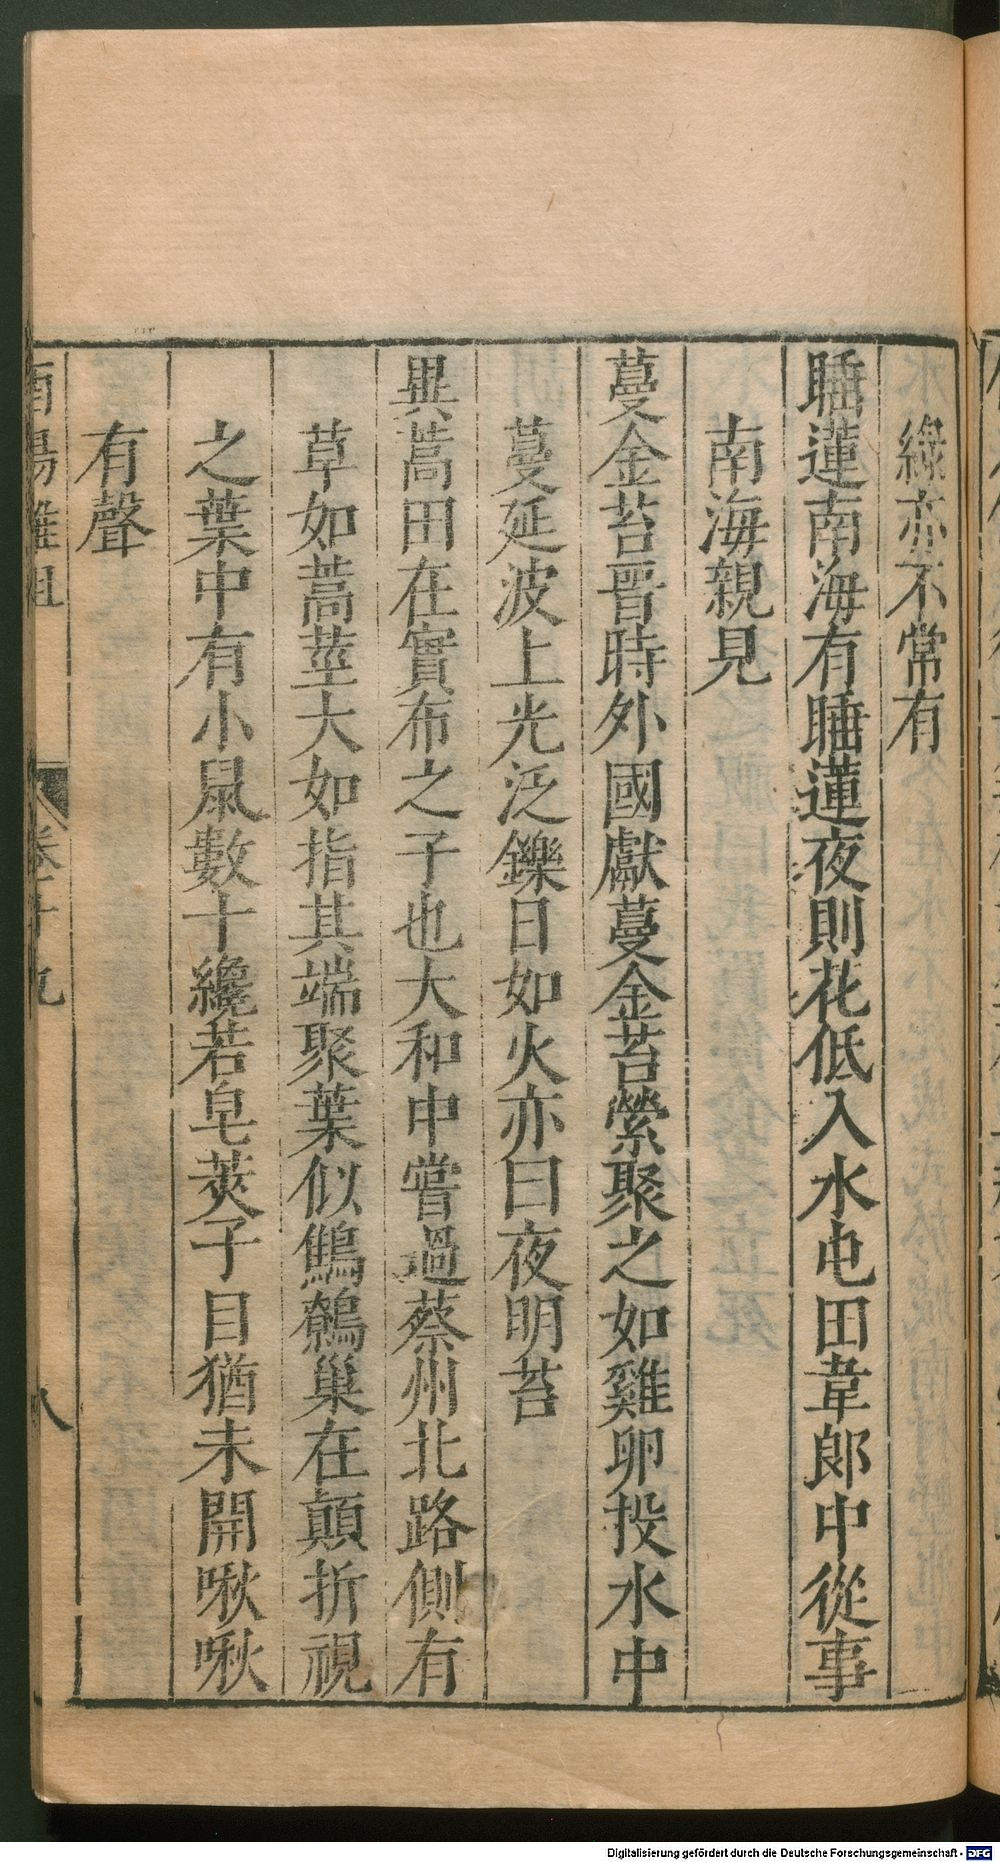 綠亦不常有
睡蓮南海有睡蓮夜則花低入水屯田韋郎中從事
南海親見
蔓金苔晉時外國獻蔓金苔縈聚之如雞卵投水中
蔓延波上光泛鑠日如火亦曰夜明苔
異蒿田在實布之子也大和中嘗過蔡州北路側有
草如蒿莖大如指其端聚葉似鷦鷯巢在顛折視
之葉中有小鼠數十纔若皂莢子目猶未開啾啾
有聲
酉陽雜俎 卷十九 八
Digitalisierung gefördert durch die Deutsche Forschungsgemeinschaft - DFG